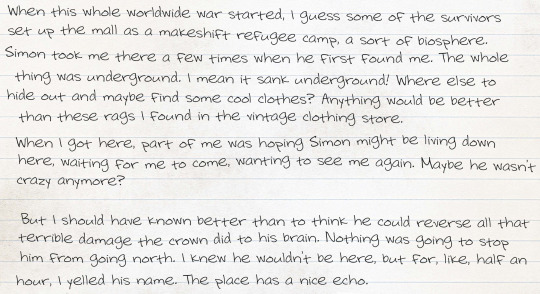 When this whole worldwide war started, I guess some of the survivors
set up the mall as a makeshift refugee camp, a sort of biosphere.
Simon took me there a few times when he first found me. The whole
thing was underground. I mean it sank underground! Where else to
hide out and maybe find some cool clothes? Anything would be better
than these rags I found in the vintage clothing store.
When I got here, part of me was hoping Simon might be living down
here, waiting for me to come, wanting to see me again. Maybe he wasn't
crazy anymore?
But I should have known better than to think he could reverse all that
terrible damage the crown did to his brain. Nothing was going to stop
him from going north. I knew he wouldn't be here, but for, like, half an
hour, I yelled his name. The place has a nice echo.